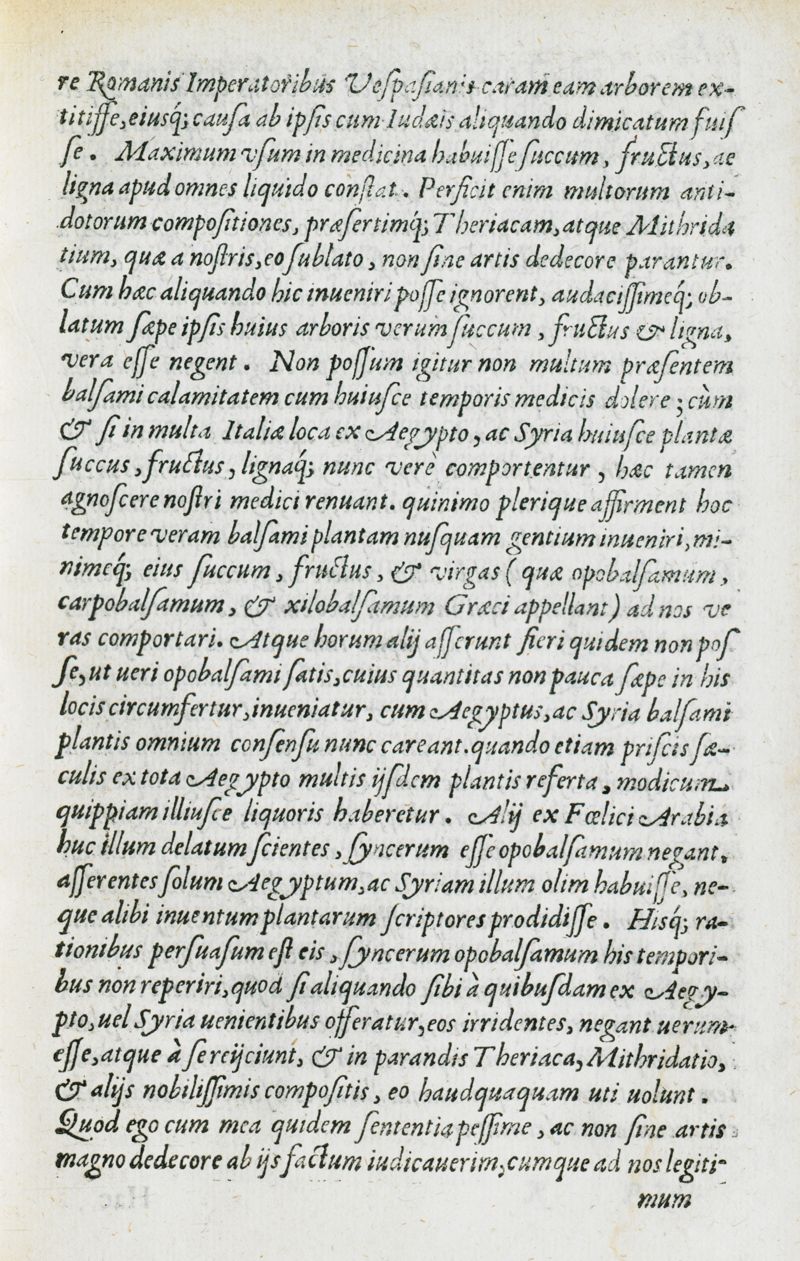 re Romanis Imperatoribus Vespasianis caram eam arborem ex-
titisse, eiusq́; causa ab ipsis cum Iudæis aliquando dimicatum fuis
se. Maximum vsum in medicina habuisse succum, fructus, ac
ligna apud omnes liquido constat. Perficit enim multorum anti-
dotorum compositiones, præsertimq́; Theriacam, atque Mithrida
tium, quæ a nostris, eo sublato, non sine artis dedecore parantur.
Cum hæc aliquando hic inueniri posse ignorent, audacissimeq́; ob-
latum sæpe ipsis huius arboris verum succum, fructus & ligna,
vera esse negent. Non possum igitur non multum præsentem
balsami calamitatem cum huiusce temporis medicis dolere; cùm
& si in multa Italiæ loca ex Aegypto, ac Syria huiusce plantæ
succus, fructus, lignaq́; nunc verè comportentur, hæc tamen
agnoscere nostri medici renuant. quinimo plerique affirment hoc
tempore veram balsami plantam nusquam gentium inueniri, mi-
nimeq́; eius succum, fructus, & virgas (quæ opobalsamum,
carpobalsamum, & xilobalsamum Græci appellant) ad nos ve
ras comportari. Atque horum alij asserunt fieri quidem non pos
se, ut ueri opobalsami satis, cuius quantitas non pauca sæpe in his
locis circumfertur, inueniatur, cum Aegyptus, ac Syria balsami
plantis omnium consensu nunc careant. quando etiam priscis sæ-
culis ex tota Aegypto multis ijsdem plantis referta, modicum
quippiam illiusce liquoris haberetur. Alij ex Fœlici Arabia
huc illum delatum scientes, syncerum esse opobalsamum negant,
asserentes solum Aegyptum, ac Syriam illum olim habuisse, ne-
que alibi inuentum plantarum scriptores prodidisse. Hisq́; ra-
tionibus persuasum est eis, syncerum opobalsamum his tempori-
bus non reperiri, quod si aliquando sibi à quibusdam ex Aegy-
pto, uel Syria uenientibus offeratur, eos irridentes, negant uerum
esse, atque à se reijciunt, & in parandis Theriaca, Mithridatio,
& alijs nobilissimis compositis, eo haudquaquam uti uolunt.
Quod ego cum mea quidem sententia pessime, ac non sine artis
magno dedecore ab ijs factum iudicauerim; cumque ad nos legiti-
mum